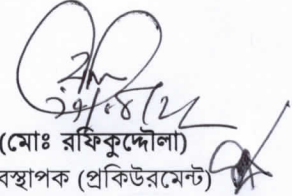 (মোঃ রফিকুদ্দৌলা)
বস্থাপক (প্রকিউরমেন্ট)